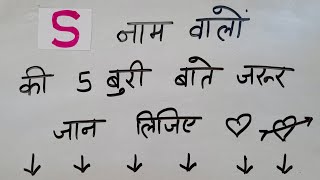 S नाम वालों
की 5 बुरी बाते जरूर
जान लिजिए